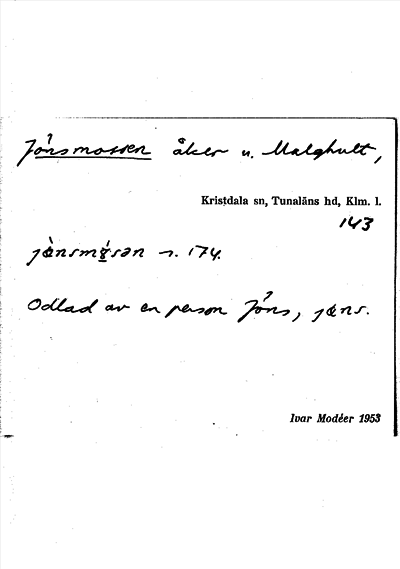 Jönsmossen åker u. Malghult,
Kristdala sn, Tunaläns hd, Klm. l.
143
jœ̀nsmɣ́sən n. 174.
Odlad av en person Jöns, jœns.
Ivar Modéer 1953